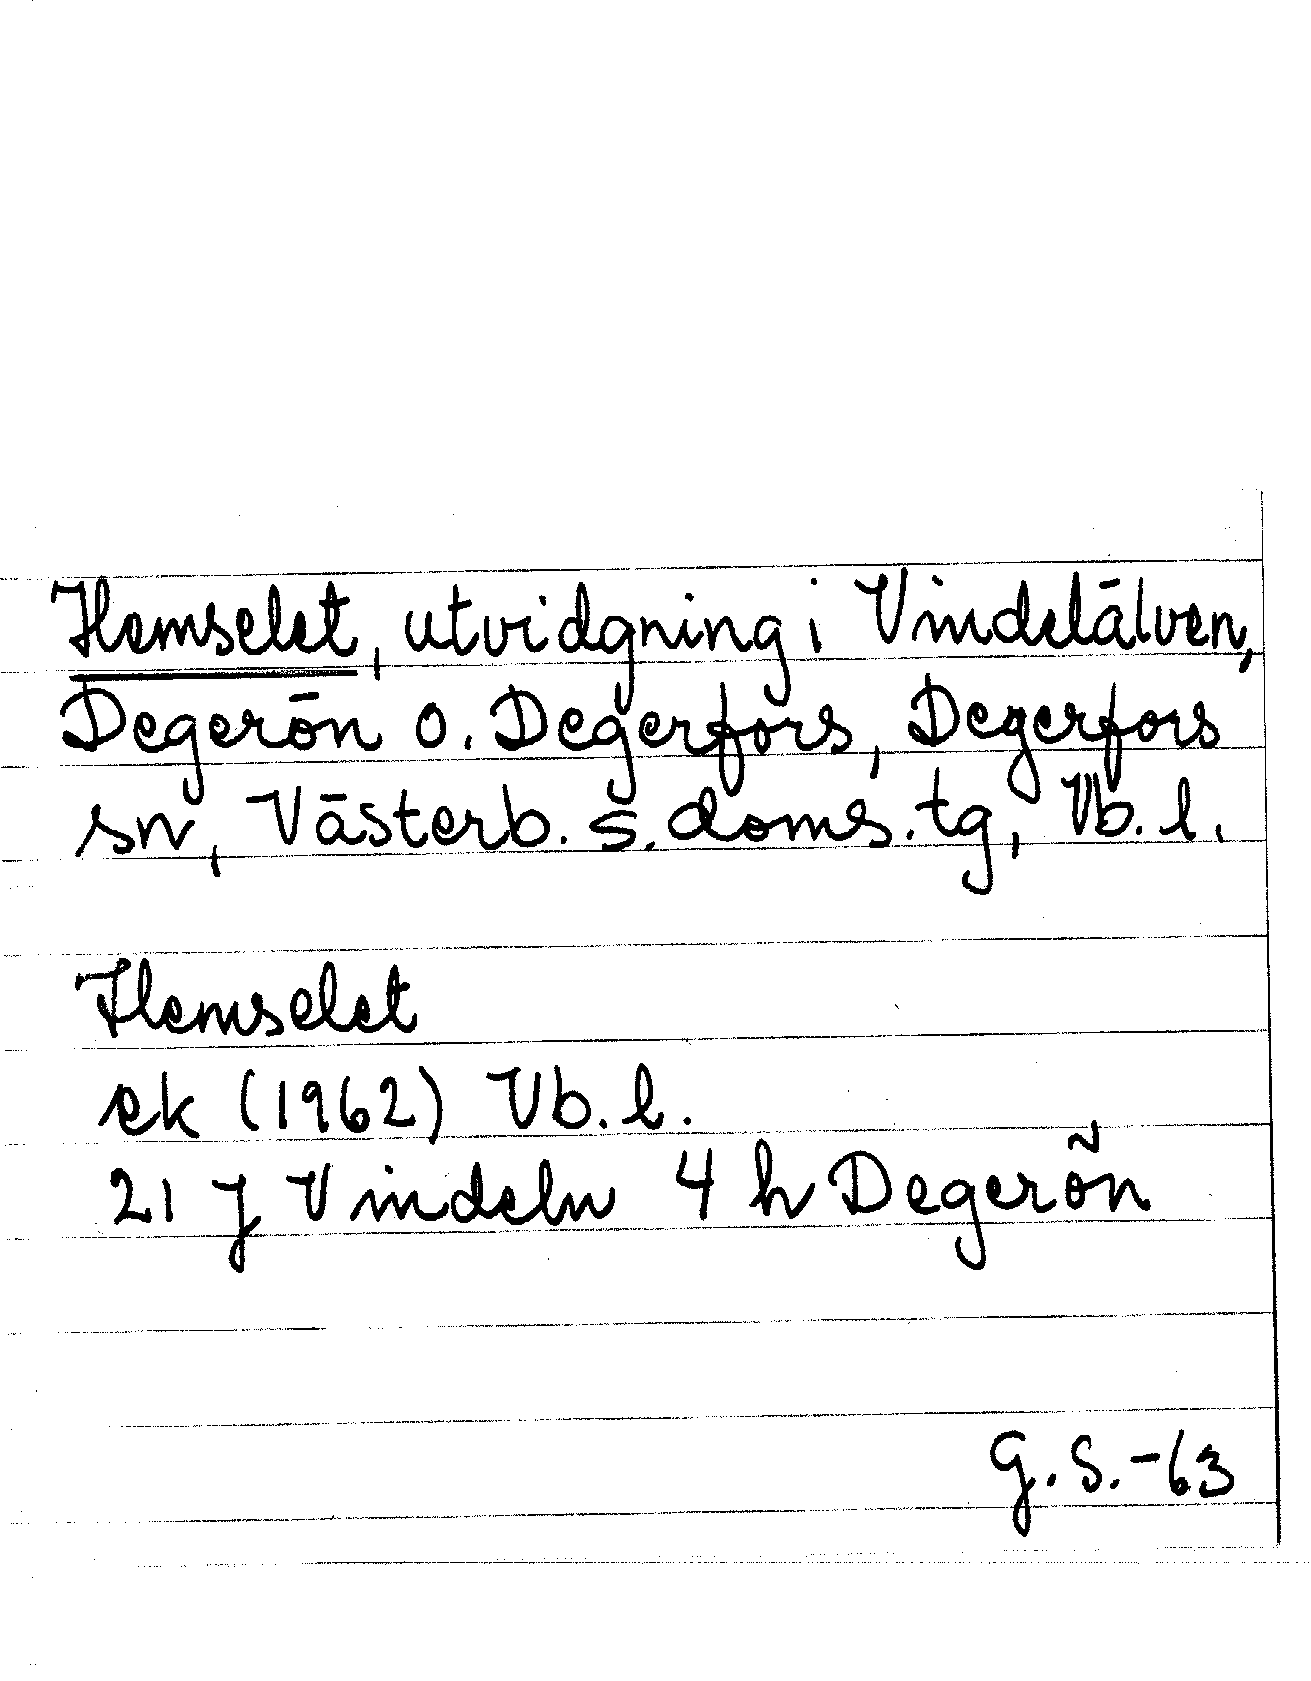 Hemselet, utvidgning i Vindelälven,
Degerön o. Degerfors, Degerfors
sn, Västerb. s. doms. tg, Vb. l.
Hemselet
ek (1962) Vb. l.
21 J Vindeln 4 h Degerön
G.S.-63